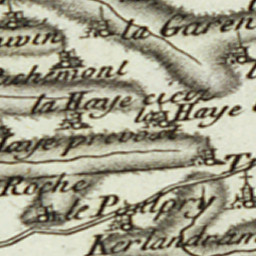 la Garen
uvin
chemont
la Haye
la Haye
Haye prevost
Roche
le Poulpry
Kerlandran